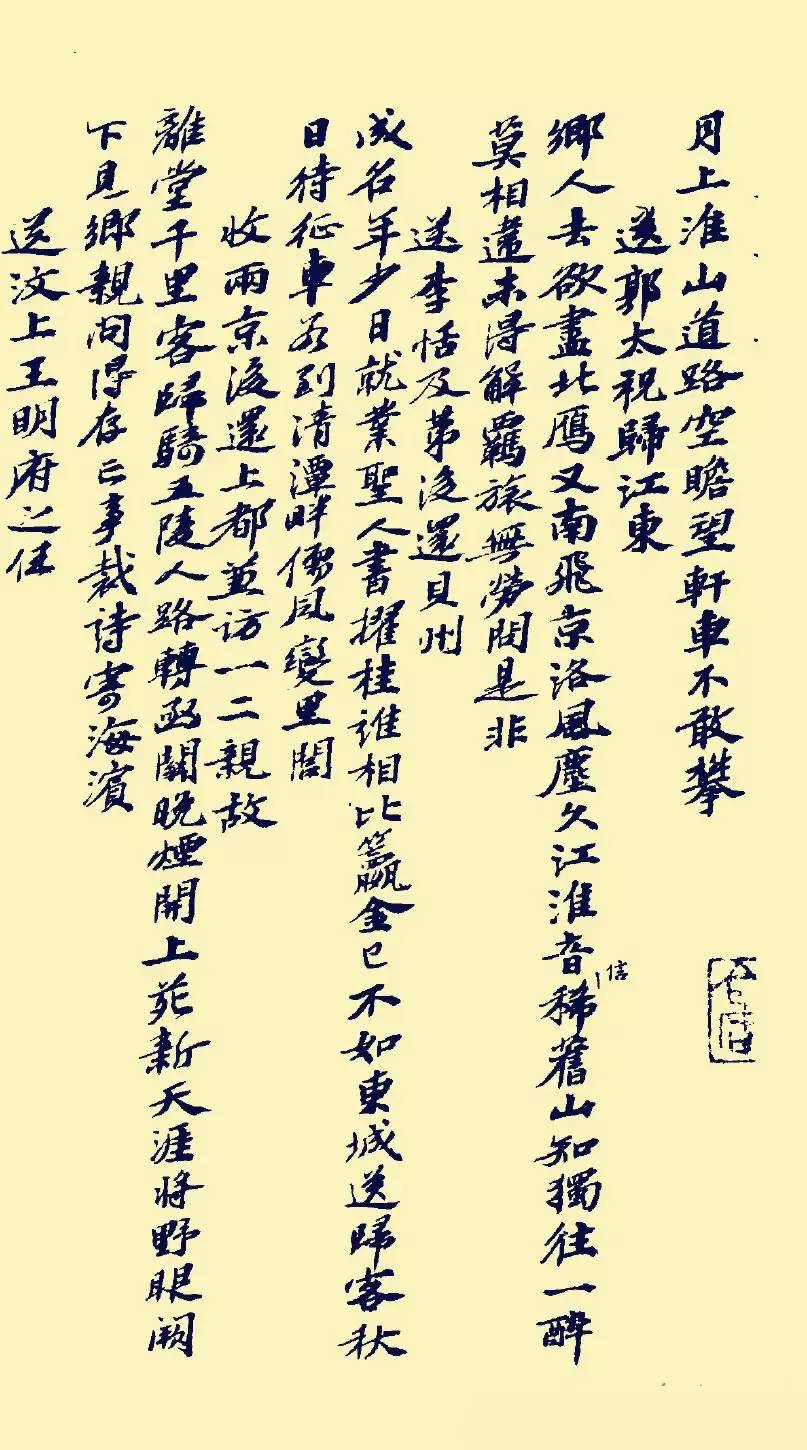 月上淮山道路空瞻望軒車不敢攀
送郭太祝歸江東
鄉人去欲盡北鴈又南飛京洛風塵久江淮音信稀舊山知獨往一醉
莫相違未得解羈旅無勞問是非
送李恬及第後還貝州
成名年少日就業聖人書擢桂誰相比籯金已不如東城送歸客秋
日待征車若到清潭畔儒風變里閭
收兩京後還上都兼訪一二親故
離堂千里客歸騎五陵人路轉函關晚煙開上苑新天涯將野眼闕
下見鄉親問得存亡事裁詩寄海濱
送汶上王明府之任